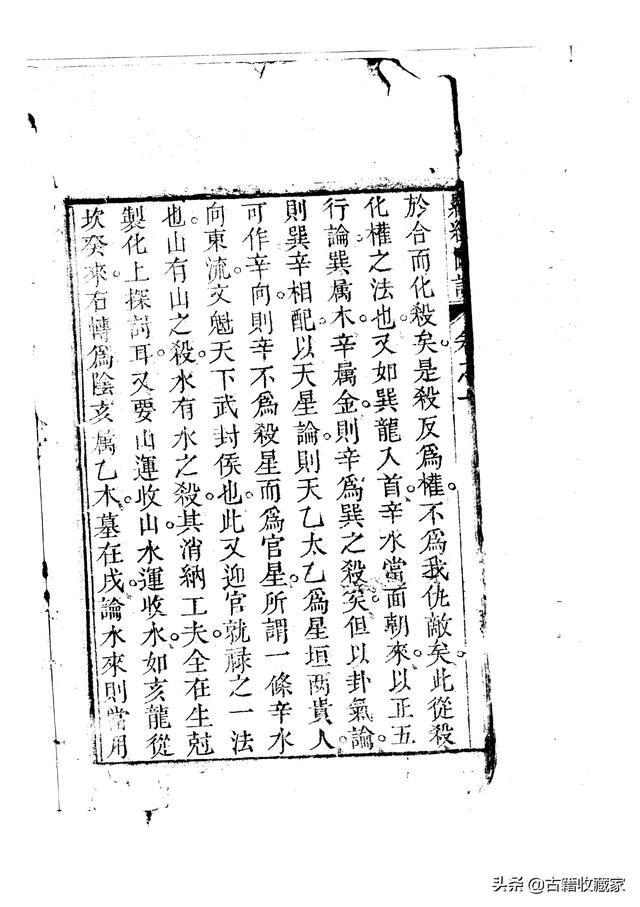 於合而化殺矣。是殺反爲權。不爲我仇敵矣。此從殺
化權之法也。又如巽龍入首。辛水當面朝來。以正五
行論巽属木。辛属金。則辛爲巽之殺矣。但以卦氣論。
則巽辛相配。以天星論。則天乙太乙爲星垣兩貴人
可作辛向。則辛不爲殺星。而爲官星。所謂一條辛水
向東流。文魁天下武封侯也。此又迎官就禄之一法
也。山有山之殺。水有水之殺。其消納工夫。全在生尅
製化上探討耳。又要山運收山。水運收水。如亥龍從
坎癸來。右轉爲陰亥属乙木。墓在戌。論水來則當用
头条 @古籍收藏家